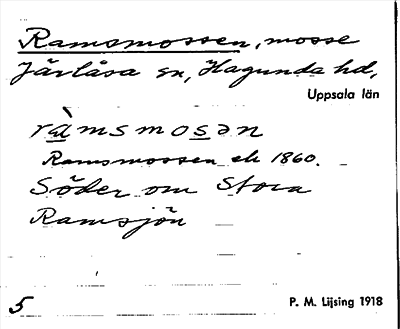 Ramsmossen, mosse
Järlåsa sn, Hagunda hd,
Uppsala län
ràmsmosən
Ramsmossen ek 1860.
Söder om Stora
Ramsjön
5
P. M. Lijsing 1918